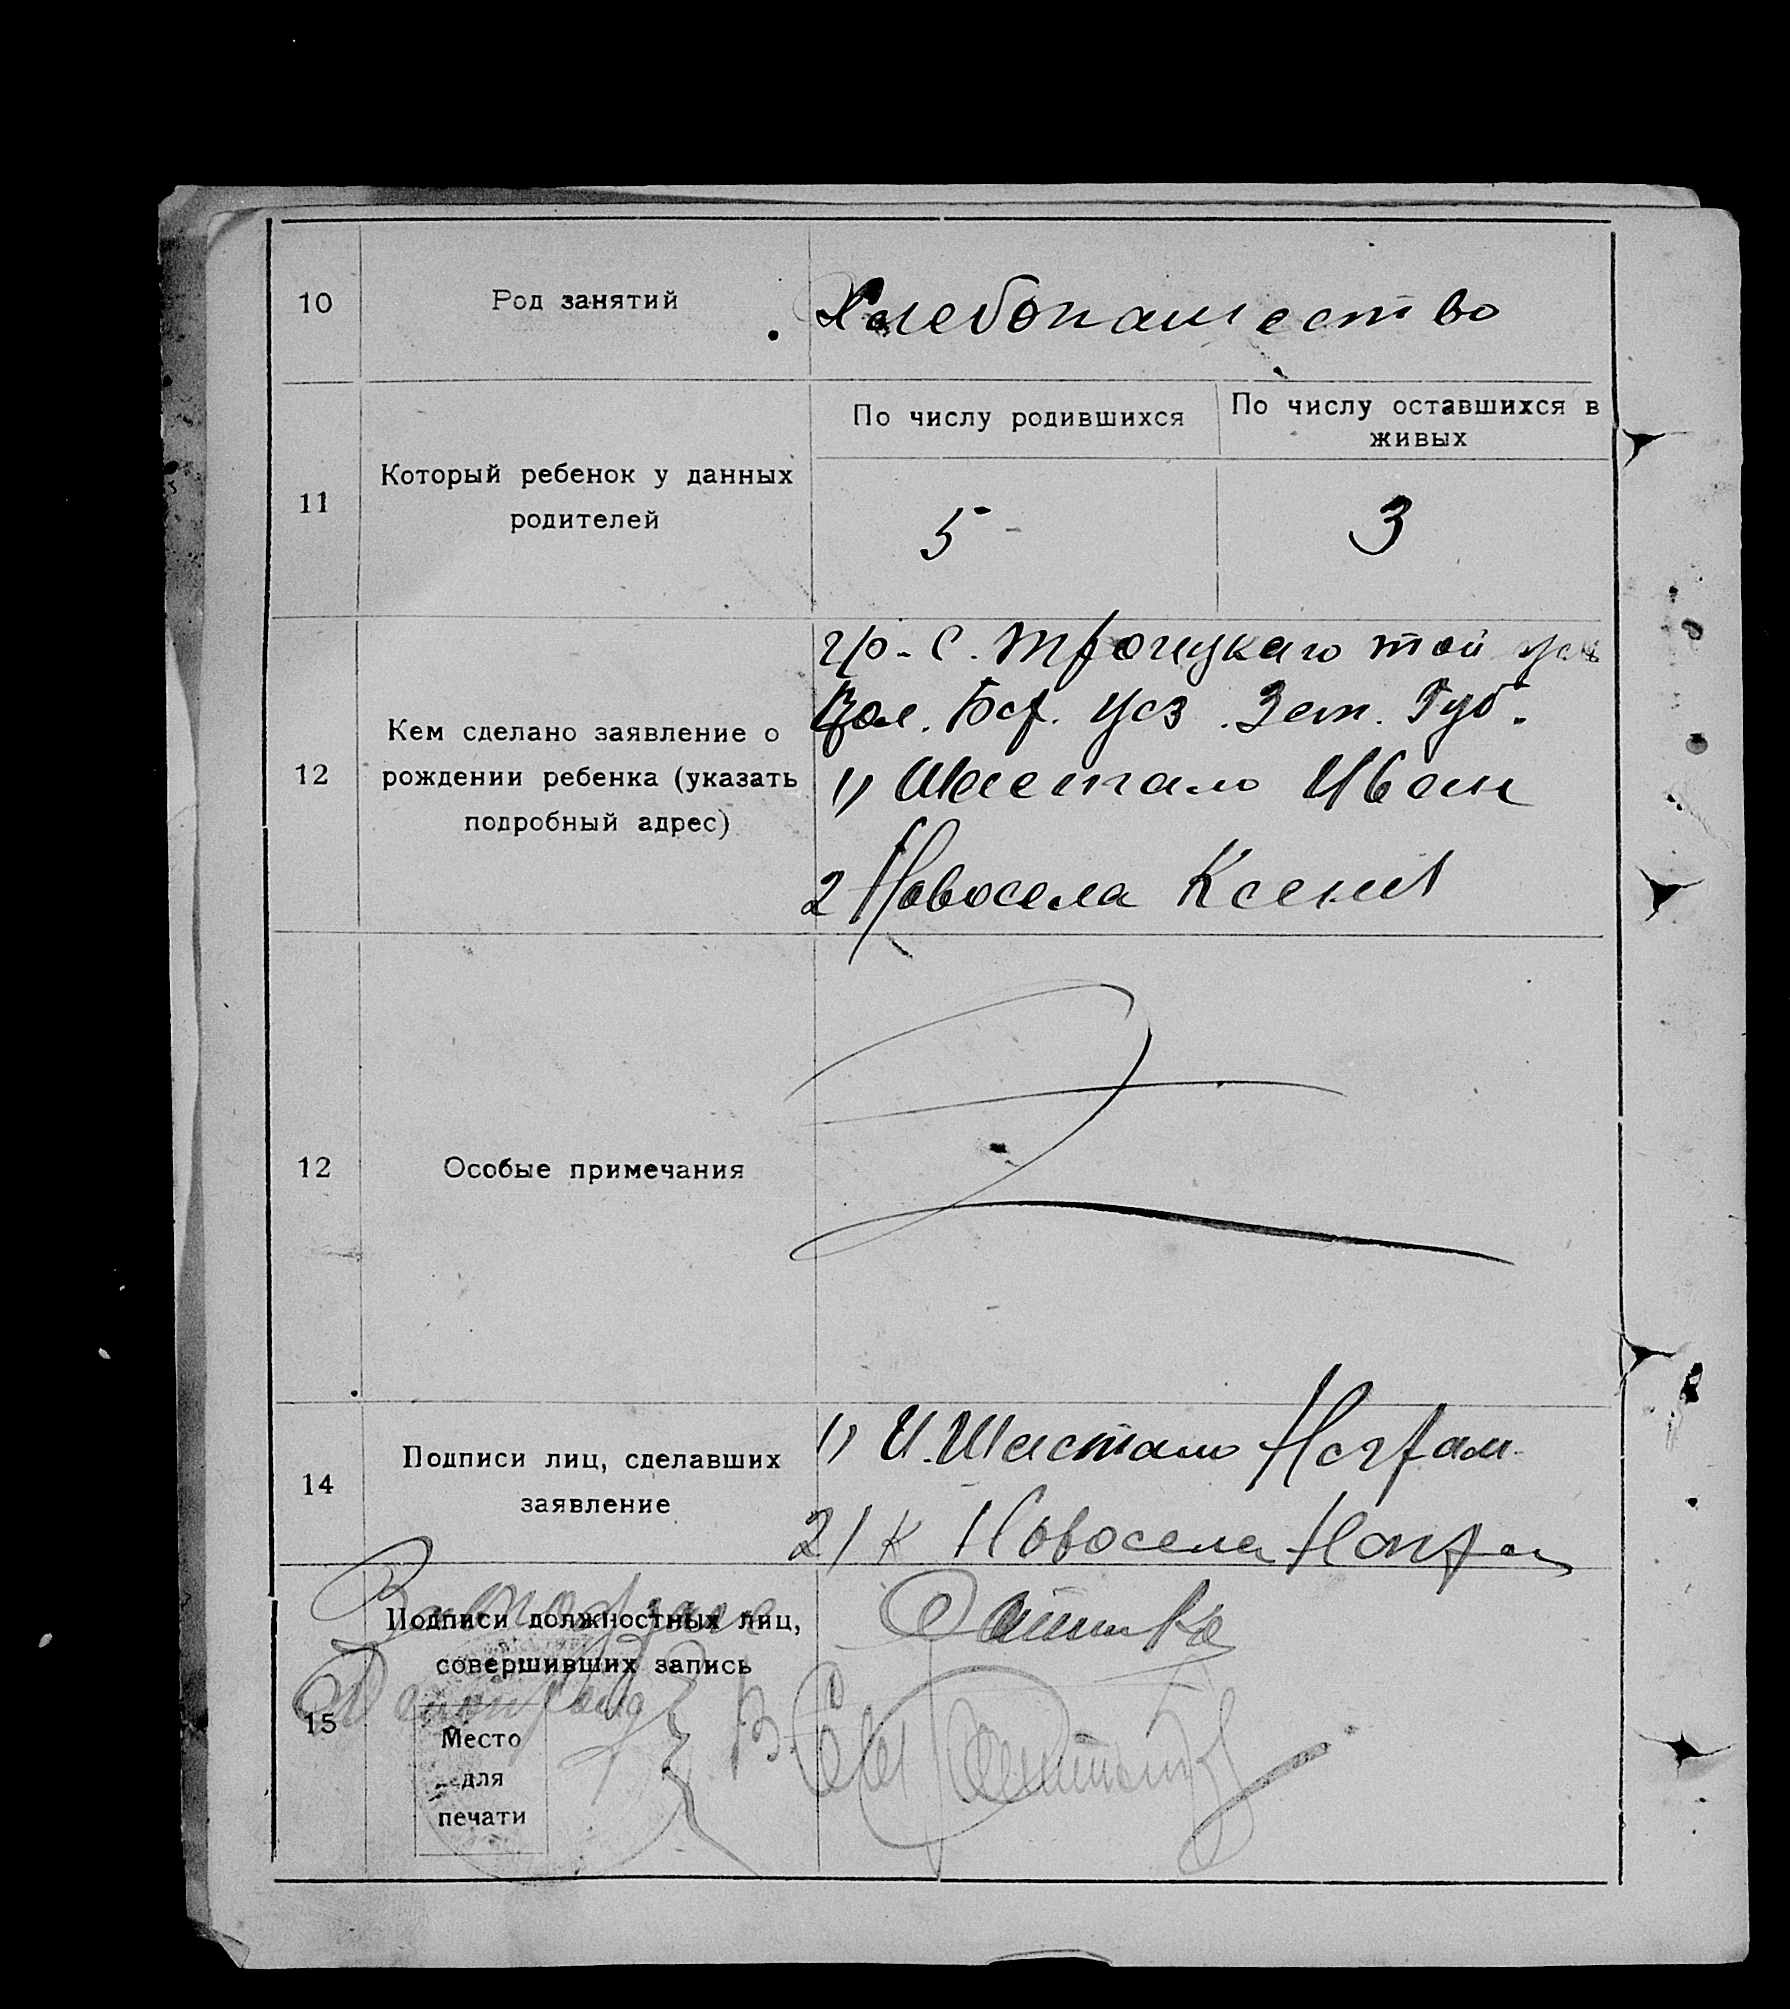 10 Род занятий Хлебопашество
По числу родившихся По числу оставшихся в
живых
11 Который ребенок у данных
родителей
5 3
гр. с. Троицкаго той же
Вол. Бер. уез. Зап. Губ.
12 Кем сделано заявление о
рождении ребенка (указать
подробный адрес)
1) Шестало Иван
2 Новосела Ксения
12 Особые примечания
14 Подписи лиц, сделавших
заявление
1) И. Шестало Неграм.
2) К Новосела Неграм
Подписи должностных лиц,
совершивших запись
15
Место
для
печати